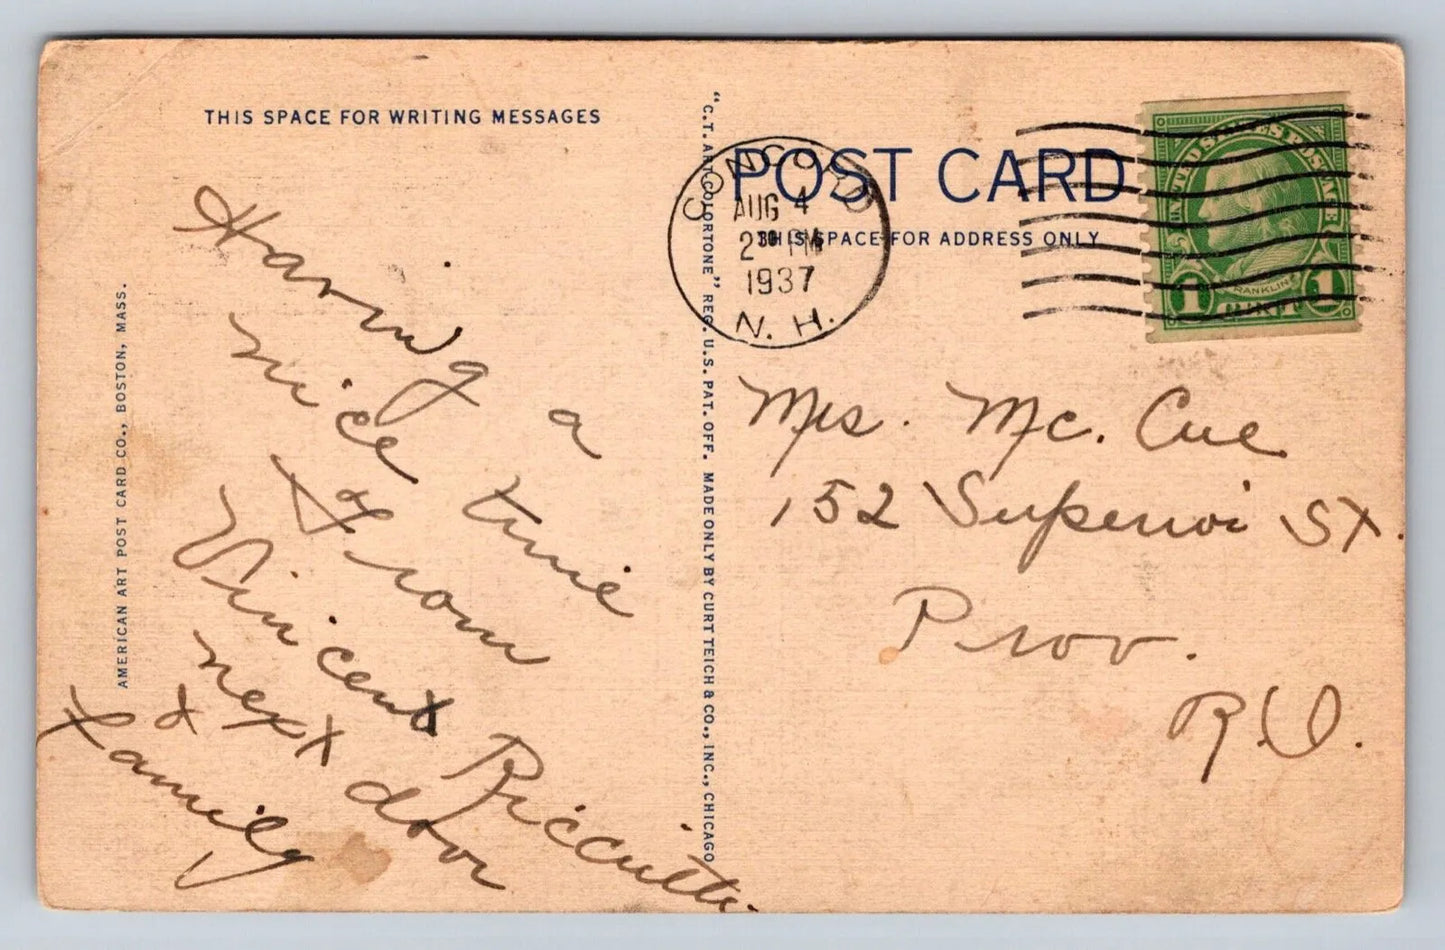 THIS SPACE FOR WRITING MESSAGES
Having a
nice time
From
Vincent Riccitti
next door
& family
AMERICAN ART POST CARD CO., BOSTON, MASS.
"C.T. ART COLORTONE" REG. U.S. PAT. OFF. MADE ONLY BY CURT TEICH & CO., INC., CHICAGO
POST CARD
THIS SPACE FOR ADDRESS ONLY
CONCORD
AUG 4
2 30 PM
1937
N. H.
UNITED STATES POSTAGE
FRANKLIN
1 CENT 1
Mrs. Mc. Cue
152 Superior St.
Prov.
R.I.